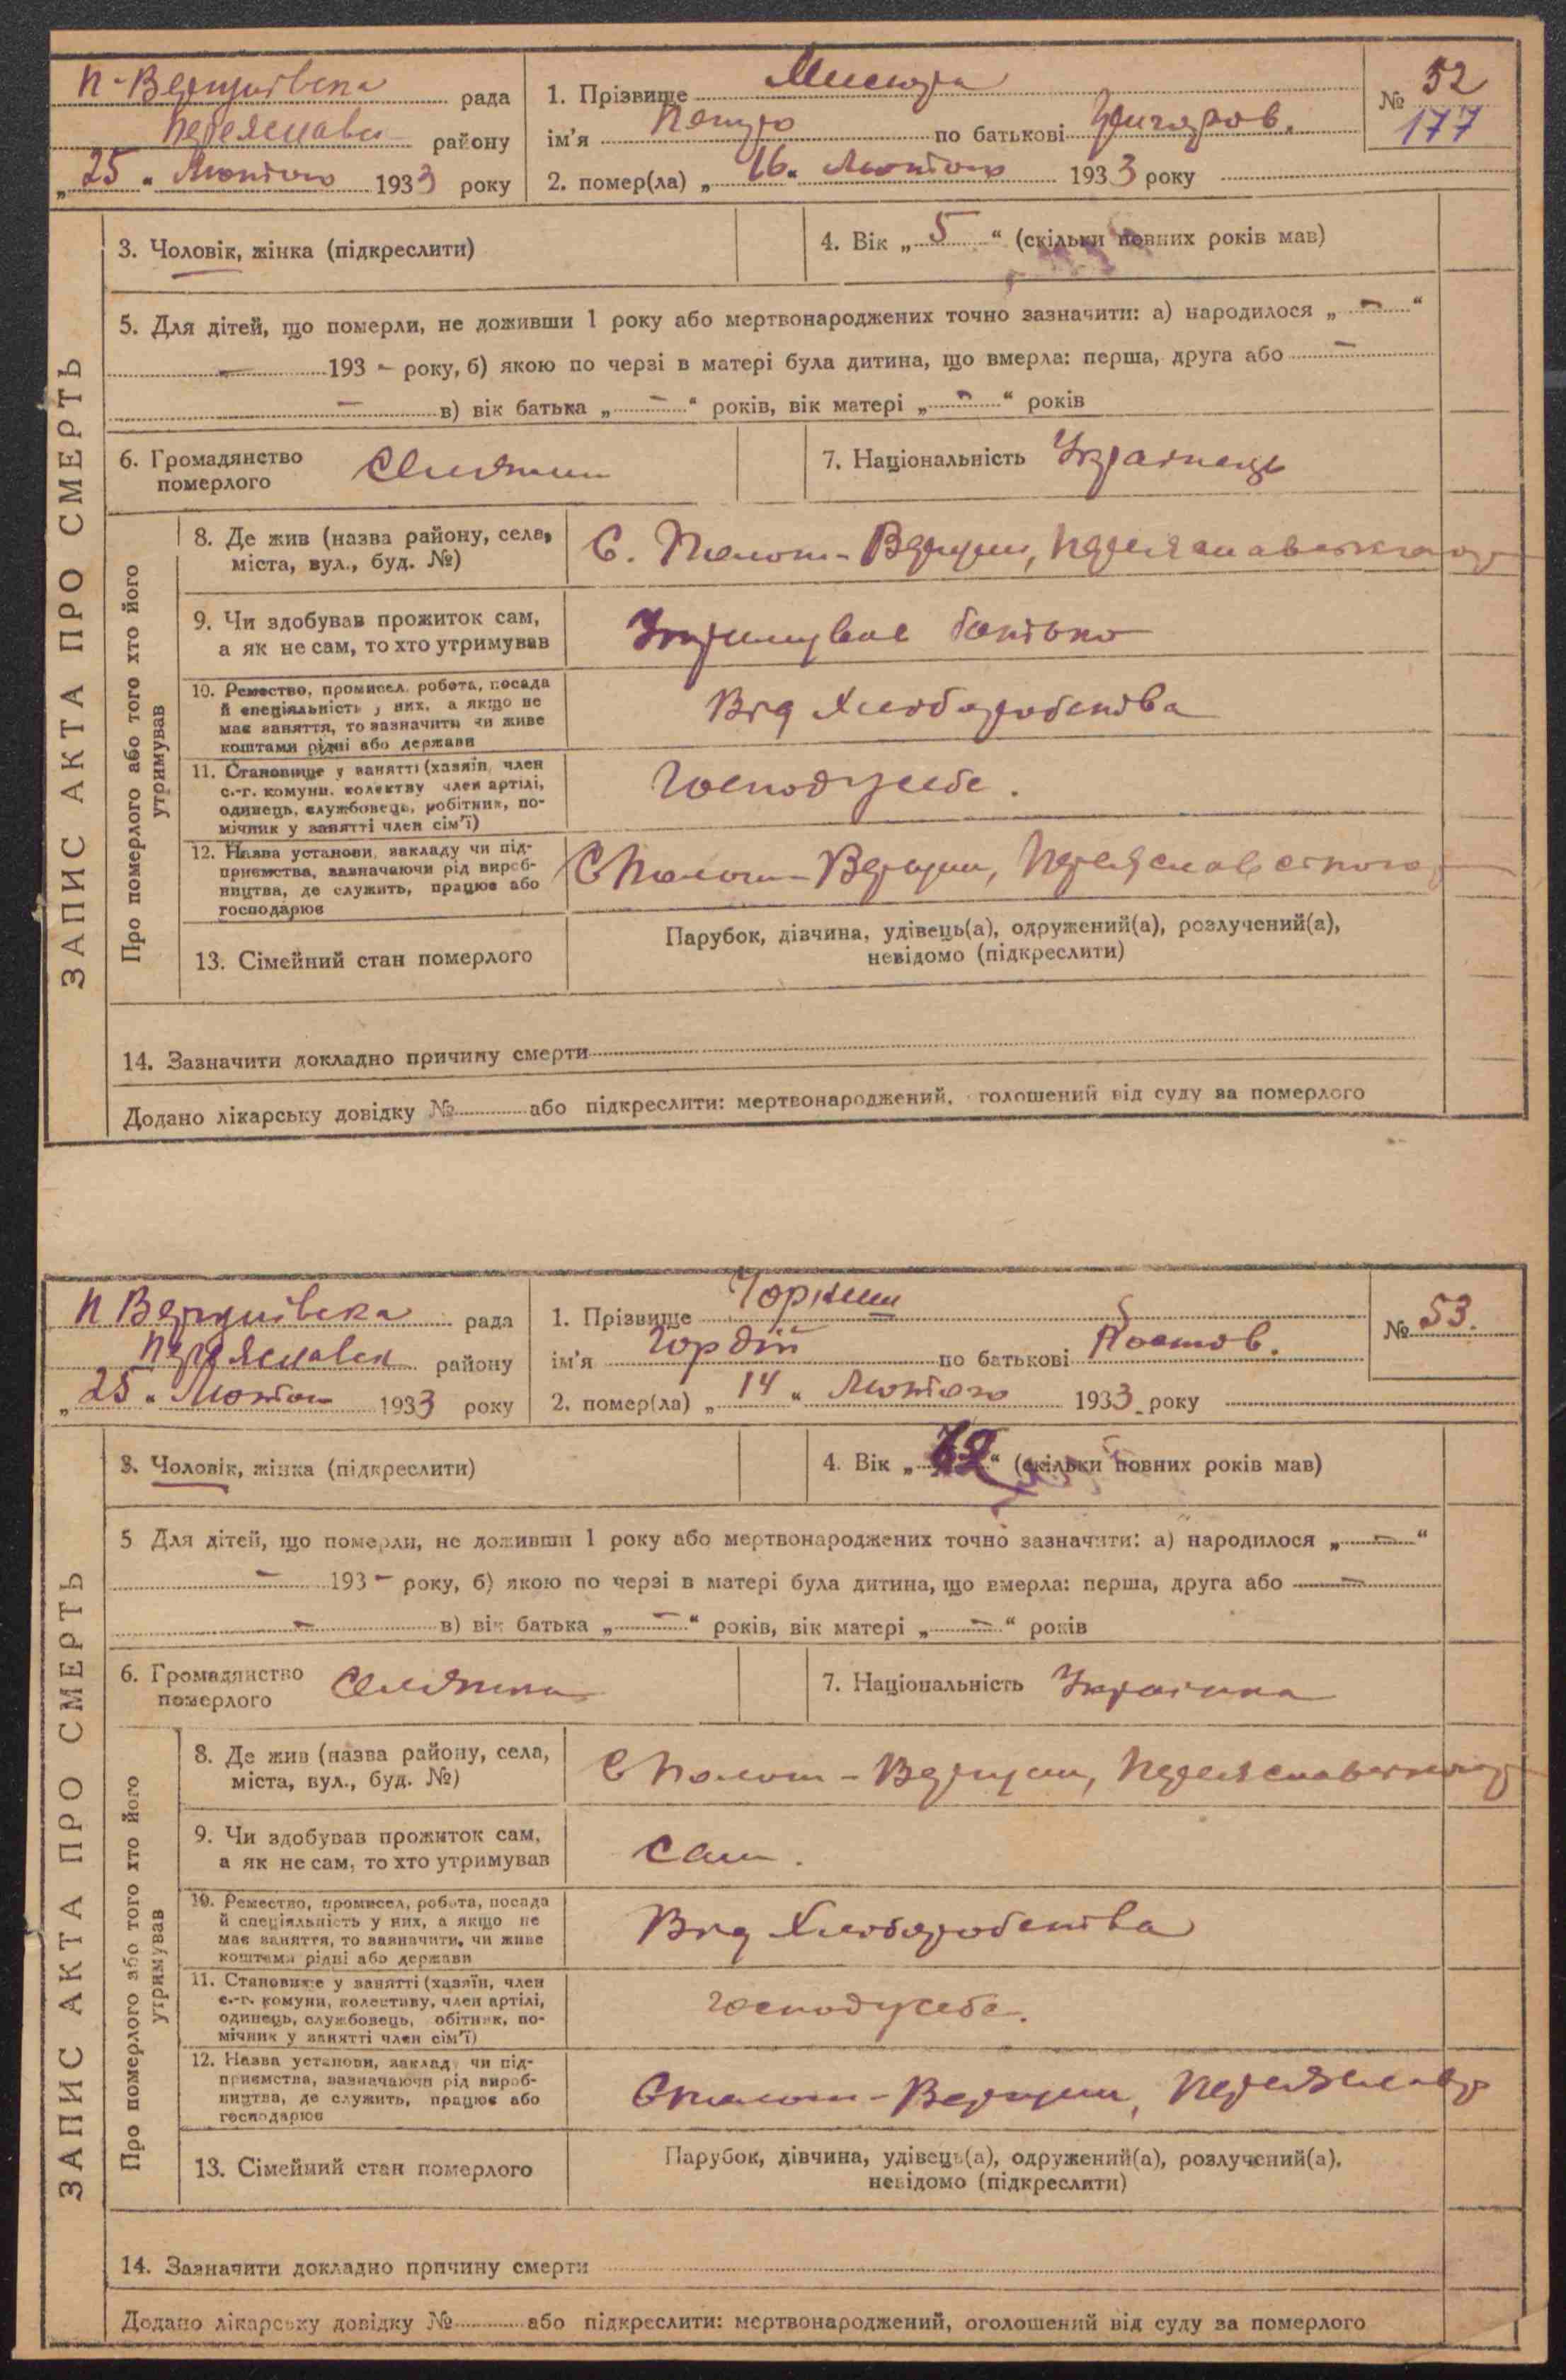 П-Вергунівська рада
Переяславськ району
„25“ Лютого 1933 року
1. Прізвище Мисюра
ім'я Петро по батькові Григоров.
2. помер(ла) „16“ Лютого 1933 року
№ 52
177
ЗАПИС АКТА ПРО СМЕРТЬ
3. Чоловік, жінка (підкреслити)
4. Вік „5“ (скільки повних років мав)
5. Для дітей, що померли, не доживши 1 року або мертвонароджених точно зазначити: а) народилося „ – “
– 193 – року, б) якою по черзі в матері була дитина, що вмерла: перша, друга або –
– в) вік батька „ – “ років, вік матері „ – “ років
6. Громадянство
померлого
Селянин
7. Національність Українець
Про померлого або того хто його
утримував
8. Де жив (назва району, села,
міста, вул., буд. №)
С. Полог-Вергуни, Переяславського р
9. Чи здобував прожиток сам,
а як не сам, то хто утримував
Утримував батько
10. Ремество, промисел, робота, посада
й спеціяльність у них, а якщо не
має заняття, то зазначити чи живе
коштами рідні або держави
Від Хліборобства
11. Становище у занятті (хазяїн, член
с.-г. комуни, колективу член артілі,
одинець, службовець, робітник, по-
мічник у занятті член сім'ї)
Господ у себе.
12. Назва установи, закладу чи під-
приємства, зазначаючи рід вироб-
ництва, де служить, працює або
господарює
С Полог-Вергуни, Переяславського р
13. Сімейний стан померлого
Парубок, дівчина, удівець(а), одружений(а), розлучений(а),
невідомо (підкреслити)
14. Зазначити докладно причину смерти
Додано лікарську довідку № або підкреслити: мертвонароджений, оголошений від суду за померлого
П Вергунівська рада
Переяславськ району
„25“ Лютого 1933 року
1. Прізвище Чоркиш
ім'я Гордій по батькові
2. помер(ла) „14“ Лютого 1933 року
№ 53.
ЗАПИС АКТА ПРО СМЕРТЬ
3. Чоловік, жінка (підкреслити)
4. Вік „ “ (скільки повних років мав)
5 Для дітей, що померли, не доживши 1 року або мертвонароджених точно зазначити: а) народилося „ – “
– 193 – року, б) якою по черзі в матері була дитина, що вмерла: перша, друга або –
– в) вік батька „ – “ років, вік матері „ – “ років
6. Громадянство
померлого
Селянина
7. Національність Українка
Про померлого або того хто його
утримував
8. Де жив (назва району, села,
міста, вул., буд. №)
С Полог-Вергуни, Переяславського р
9. Чи здобував прожиток сам,
а як не сам, то хто утримував
Сам.
10. Ремество, промисел, робота, посада
й спеціяльність у них, а якщо не
має заняття, то зазначити, чи живе
коштами рідні або держави
Від Хліборобства
11. Становище у занятті (хазяїн, член
с.-г. комуни, колективу, член артілі,
одинець, службовець, обітник, по-
мічник у занятті член сім'ї)
Господ у себе.
12. Назва установи, закладу чи під-
приємства, зазначаючи рід вироб-
ництва, де служить, працює або
господарює
С Полог-Вергуни, Переяслав р
13. Сімейний стан померлого
Парубок, дівчина, удівець(а), одружений(а), розлучений(а),
невідомо (підкреслити)
14. Зазначити докладно причину смерти
Додано лікарську довідку № або підкреслити: мертвонароджений, оголошений від суду за померлого